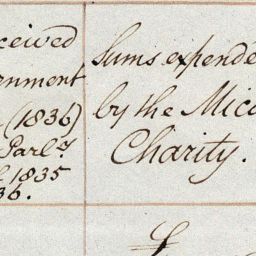 ceived
ernment
(1836)
Parl.y
1835
36.
Sums expende
by the Mico
Charity.
£